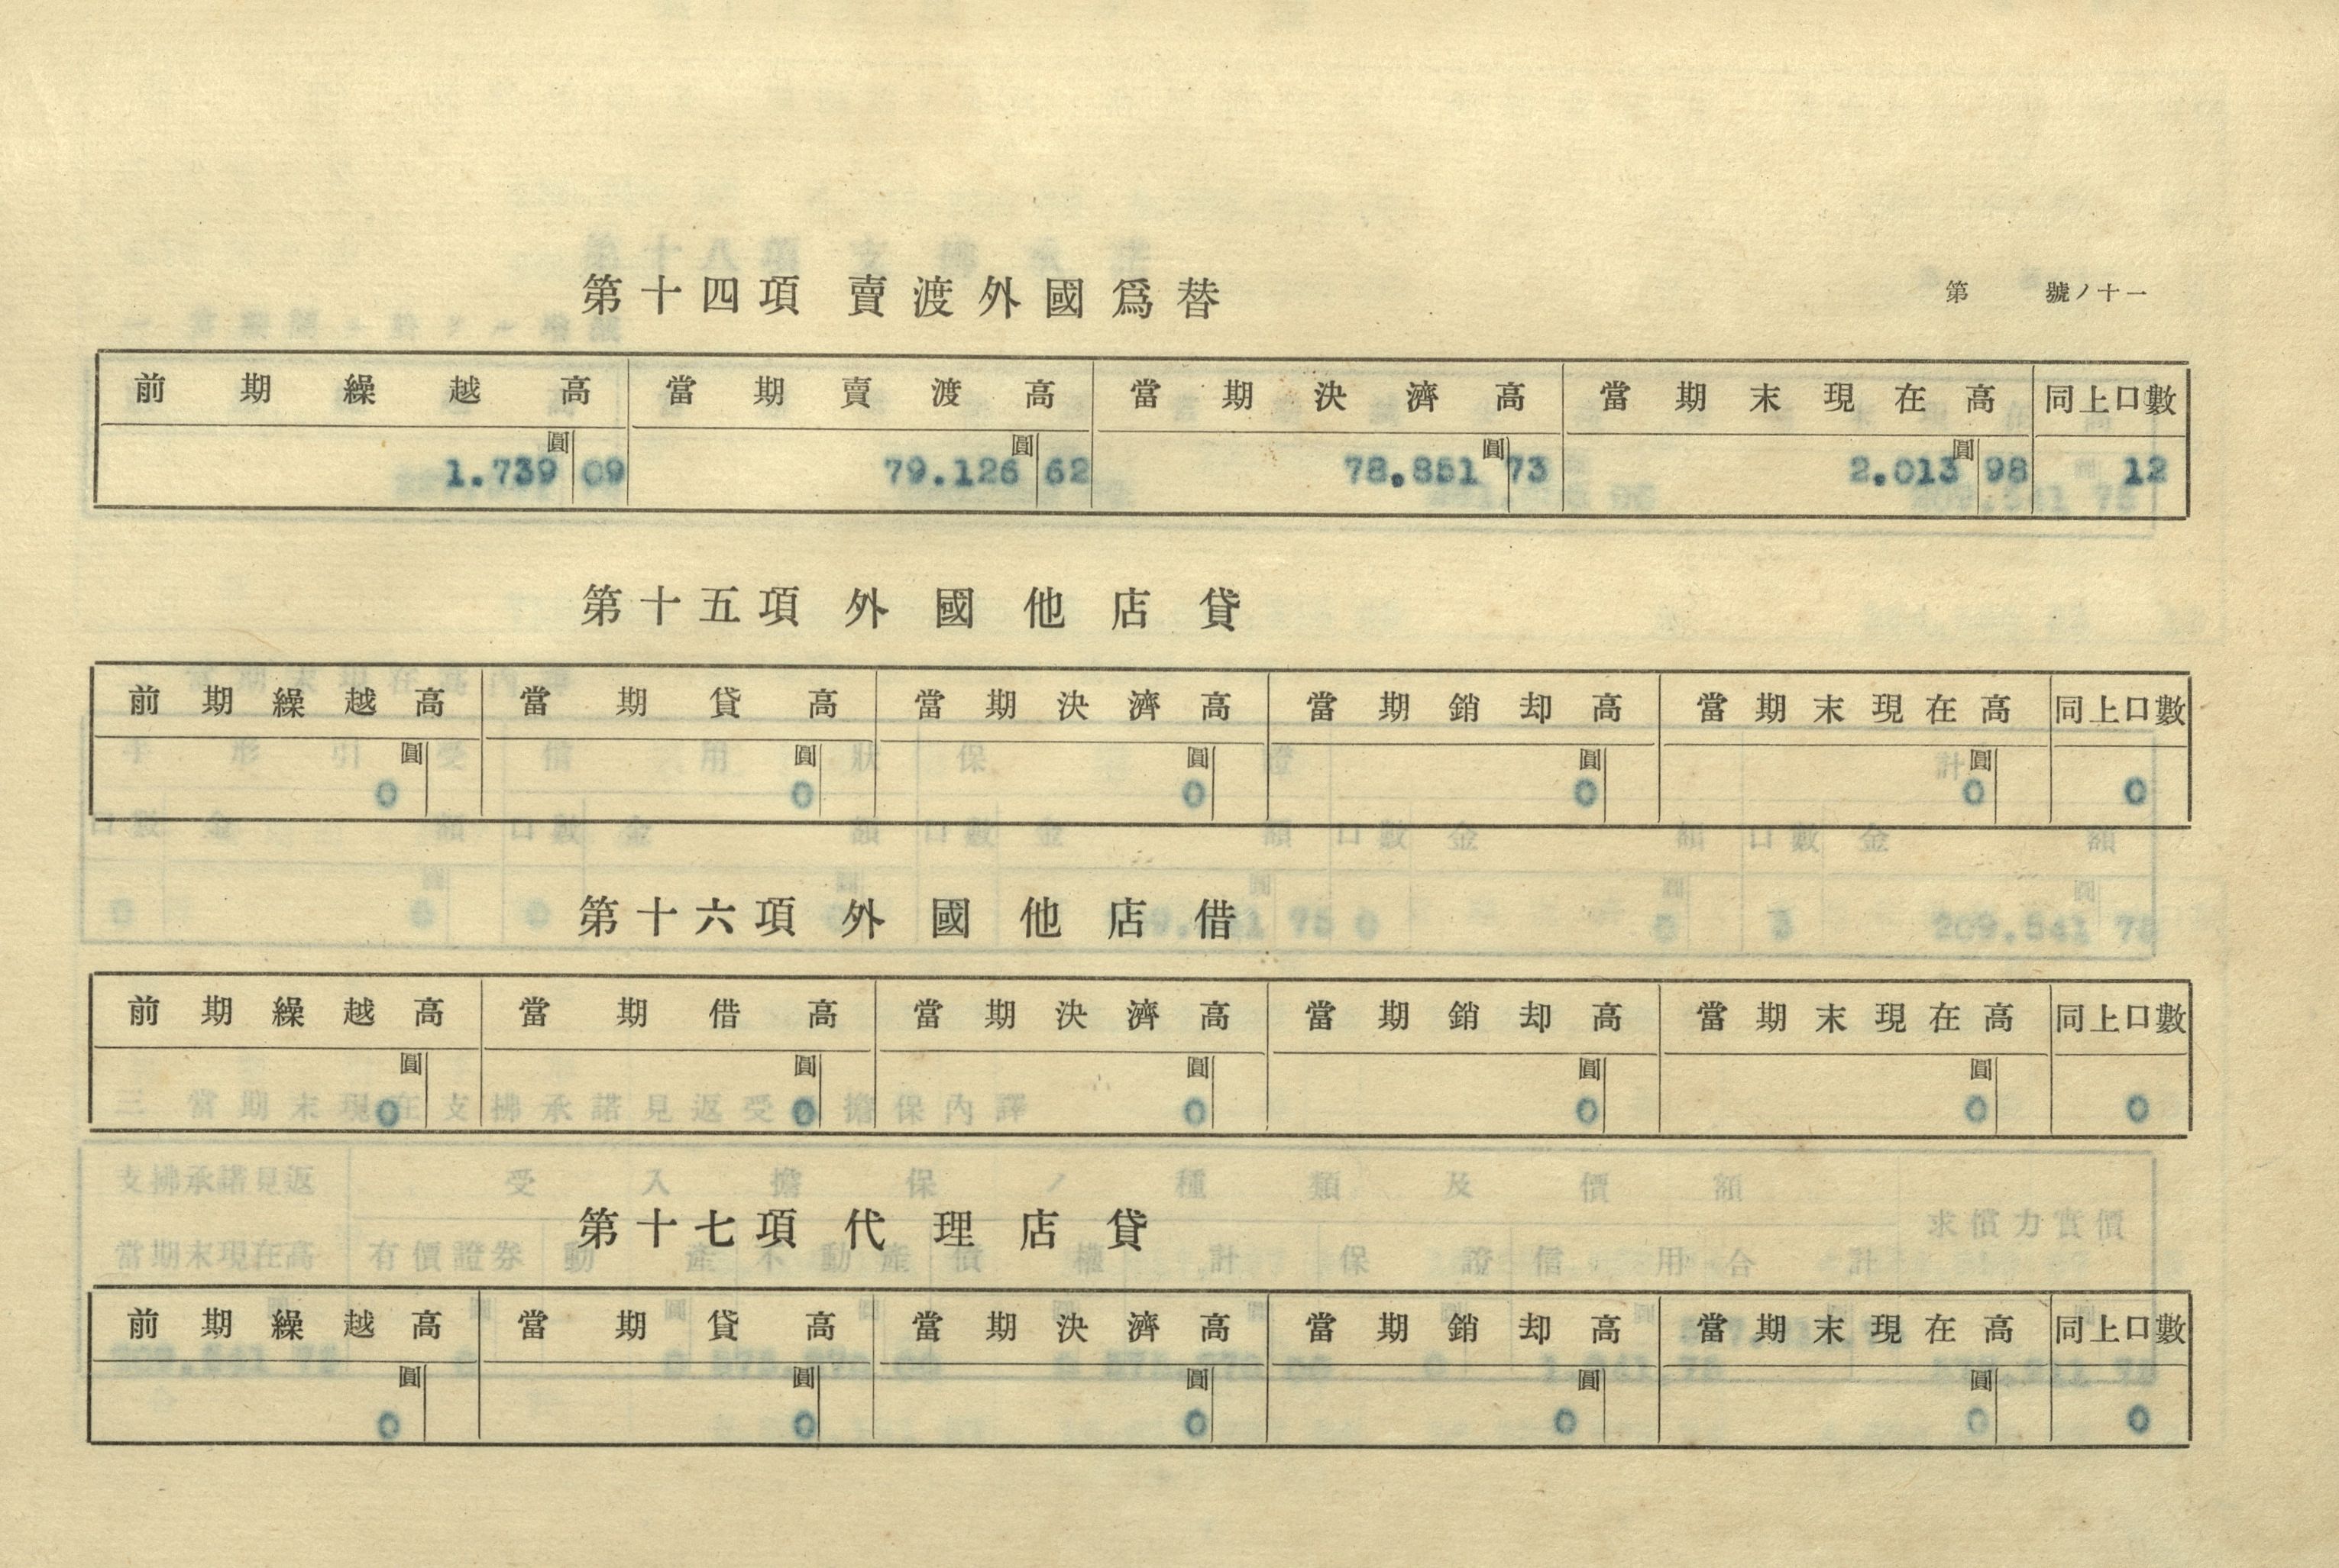 第十四項 賣渡外國爲替
第 號ノ十一
前期繰越高 當期賣渡高 當期決濟高 當期末現在高 同上口數
圓 圓 圓 圓
1.739 09 79.126 62 78.851 73 2.013 98 12
第十五項 外國他店貸
前期繰越高 當期貸高 當期決濟高 當期銷却高 當期末現在高 同上口數
圓 圓 圓 圓 圓
0 0 0 0 0 0
第十六項 外國他店借
前期繰越高 當期借高 當期決濟高 當期銷却高 當期末現在高 同上口數
圓 圓 圓 圓 圓
0 0 0 0 0 0
第十七項 代理店貸
前期繰越高 當期貸高 當期決濟高 當期銷却高 當期末現在高 同上口數
圓 圓 圓 圓 圓
0 0 0 0 0 0